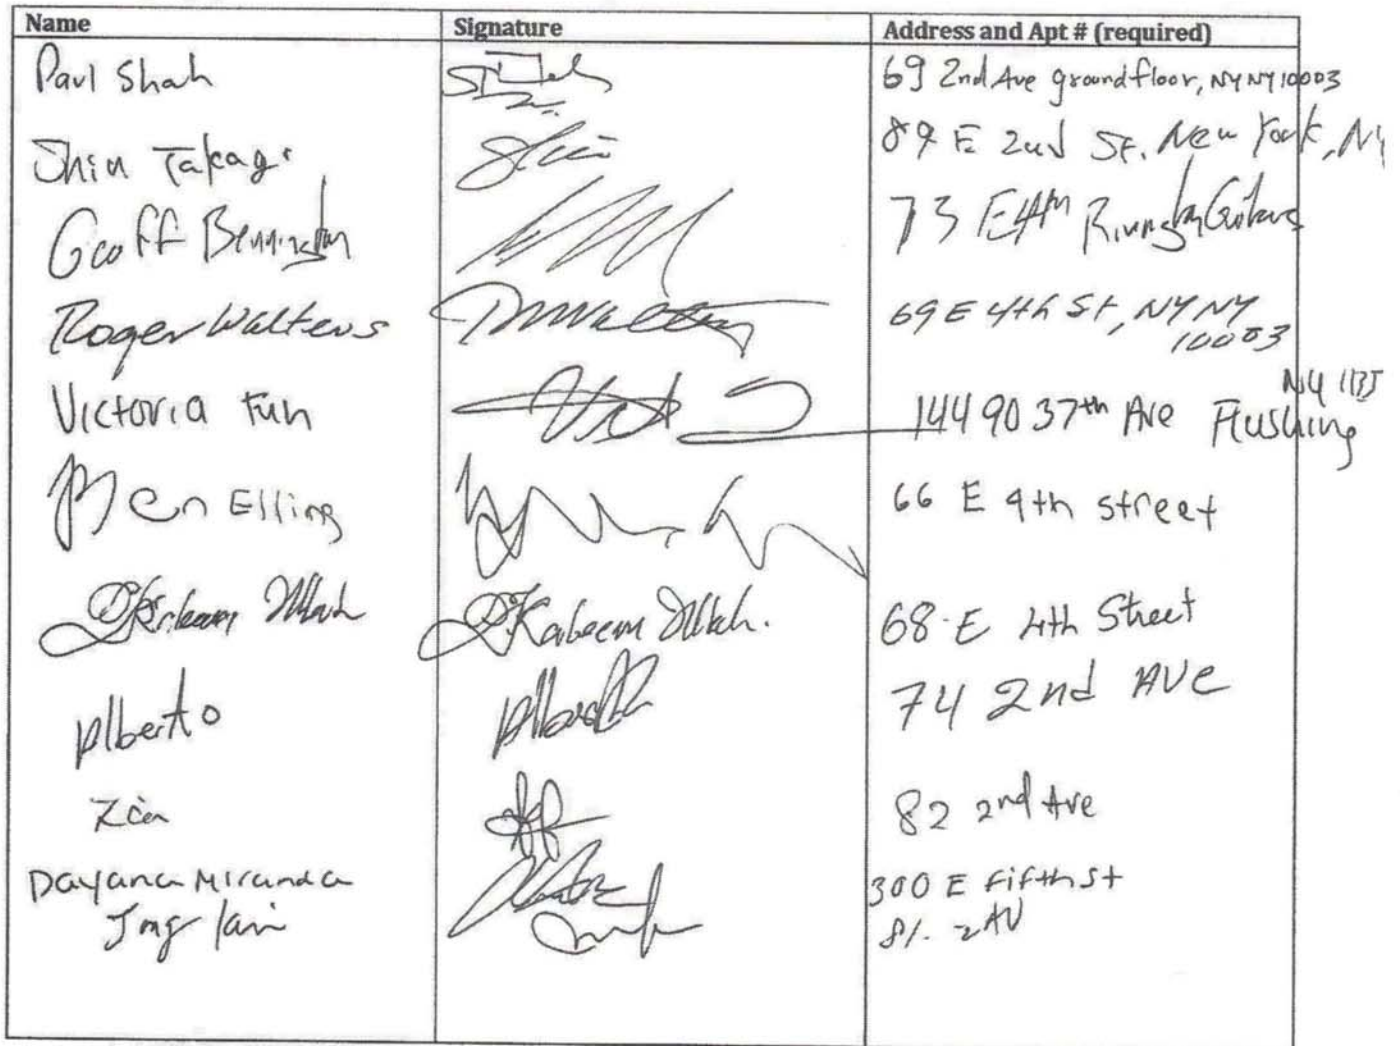 Name Signature Address and Apt # (required)
Paul Shah 69 2nd Ave ground floor, NY NY 10003
Shin Takagi Shin 89 E 2nd St. New York, NY
Geoff Bennington 73 E 4th Rivington Guitars
Roger Walters 69 E 4th St, NY NY
10003
NY 1135
Victoria Fun 144 90 37th Ave Flushing
Ben Elling 66 E 4th street
Kabeem Ullah. 68 E 4th Street
Alberto 74 2nd AVe
Zia 82 2nd Ave
Dayana Miranda 300 E Fifth St
81. 2 AV